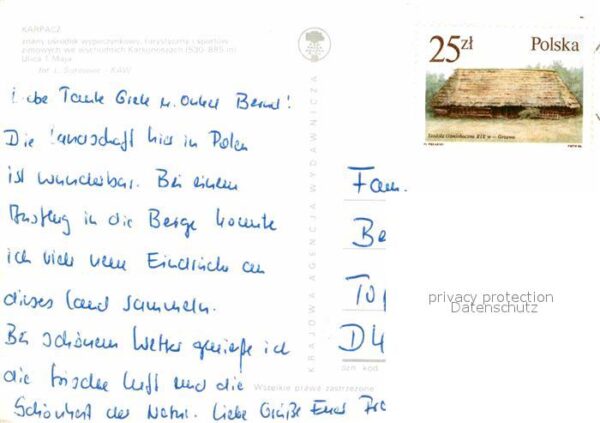 KARPACZ
znany ośrodek wypoczynkowy, turystyczny i sportów
zimowych we wschodnich Karkonoszach (530-885 m)
Ulica 1 Maja
fot. L. Surowiec - KAW
Liebe Tante Grete u. Onkel Bernd!
Die Landschaft hier in Polen
ist wunderbar. Bei einem
Ausflug in die Berge konnte
ich viele neue Eindrücke an
dieses Land sammeln.
Bei schönem Wetter genieße ich
die frische Luft und die
Schönheit der Natur. Liebe Grüße Euer Fra
KRAJOWA AGENCJA WYDAWNICZA
Wszelkie prawa zastrzeżone
25 zł Polska
XIX w - Grzawa
Fam.
Be
To
D4
ozn. kod.
privacy protection
Datenschutz